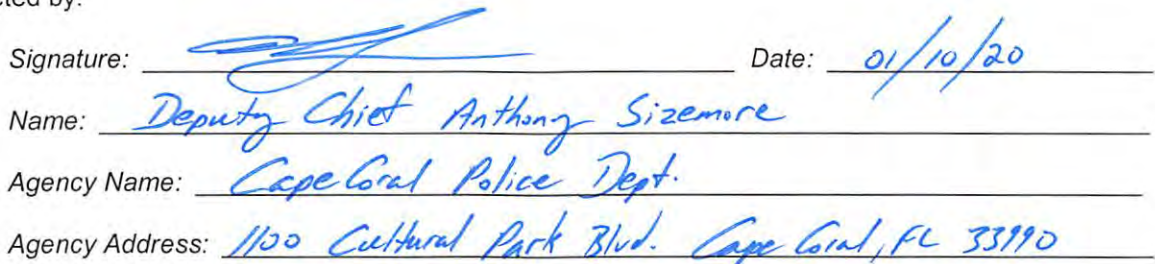 cted by:
Signature: Date: 01/10/20
Name: Deputy Chief Anthony Sizemore
Agency Name: Cape Coral Police Dept.
Agency Address: 1100 Cultural Park Blvd. Cape Coral, FL 33990